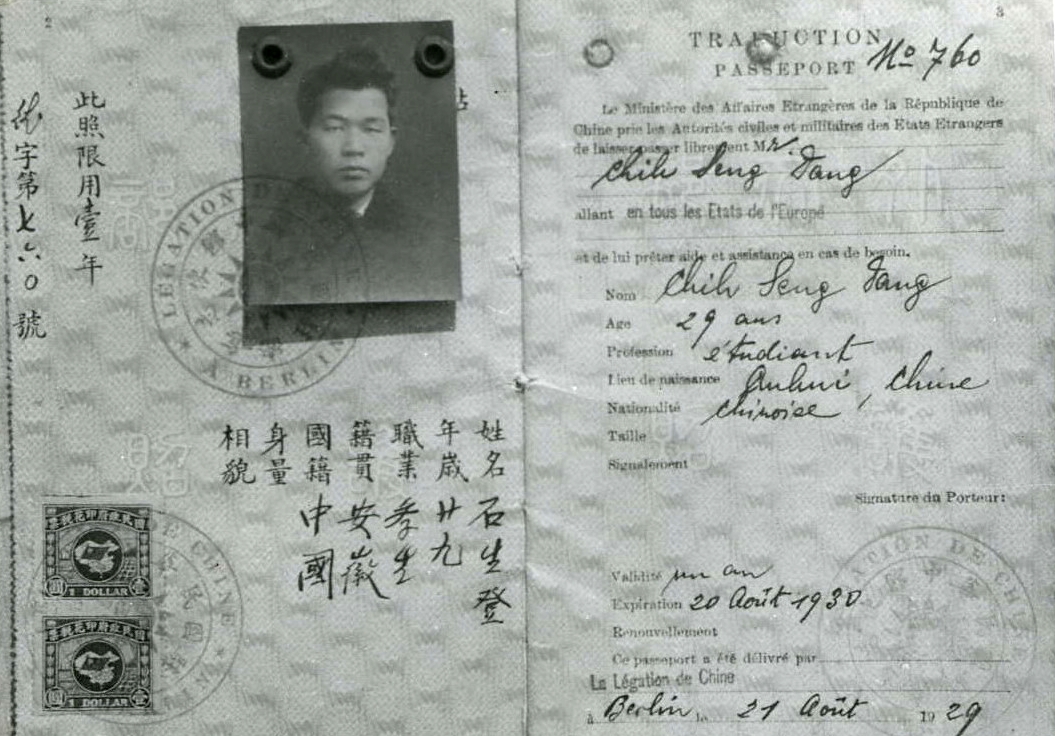 2
此照限用壹年
字第七六〇號
姓名 石生登
年歲 廿九
職業 學生
籍貫 安徽
國籍 中國
身量
相貌
LÉGATION DE
À BERLIN
1 DOLLAR
1 DOLLAR
DE CHINE
3
TRADUCTION
PASSEPORT No 760
Le Ministère des Affaires Etrangères de la République de
Chine prie les Autorités civiles et militaires des Etats Etrangers
de laisser passer librement Mr.
Chih Seng Dang
allant en tous les Etats de l'Europé
et de lui prêter aide et assistance en cas de besoin.
Nom Chih Seng Dang
Age 29 ans
Profession étudiant
Lieu de naissance Anhui, Chine
Nationalité chinoise
Taille
Signalement
Signature du Porteur:
Validité un an
Expiration 20 Août 1930
Renouvellement
Ce passeport a été délivré par
La Légation de Chine
à Berlin le 21 Août 1929